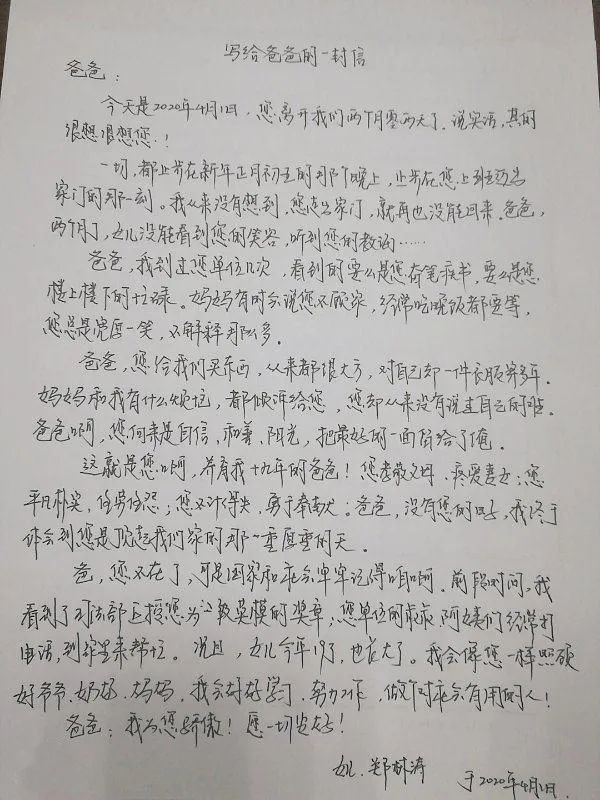 写给爸爸的一封信
爸爸：
今天是2020年4月1日，您离开我们两个月零两天了。说实话，真的
很想很想您！
一切，都止步在新年正月初五的那个晚上，止步在您上到迈出
家门的那一刻。我从来没有想到，您走出家门，就再也没能回来。爸爸，
两个月了，女儿没能看到您的笑容，听到您的教诲……
爸爸，我到过您单位几次，看到的要么是您奋笔疾书，要么是您
楼上楼下的忙碌。妈妈有时会说您不顾家，经常吃晚饭都要等，
您总是宽厚一笑，不解释那么多。
爸爸，您给我们买东西，从来都很大方，对自己却一件衣服穿多年。
妈妈和我有什么烦恼，都倾诉给您，您却从来没有说过自己的难。
爸爸啊，您向来是自信、和善、阳光，把最好的一面留给了俺。
这就是您啊，养育我十九年的爸爸！您孝敬父母，疼爱妻女；您
平凡朴实，任劳任怨；您不计得失，勇于奉献；爸爸，没有您的日子，我终于
体会到您是顶起我们家的那一重厚重的天。
爸，您不在了，可是国家和社会牢牢记得咱啊。前段时间，我
看到了司法部追授您为二级英模的奖章；您单位的叔叔阿姨们经常打
电话，到家里来帮忙。况且，女儿今年19了，也长大了。我会像您一样照顾
好爷爷、奶奶、妈妈，我会好好学习，努力工作，做个对社会有用的人！
爸爸：我为您骄傲！愿一切安好！
女儿：郑林涛
于2020年4月1日